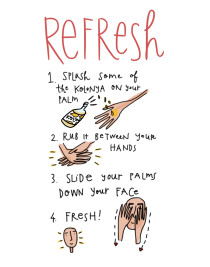 Refresh
1. Splash some of
the Kolonya on your
palm
2. Rub it between your
hands
3. Slide your palms
down your face
4. Fresh!